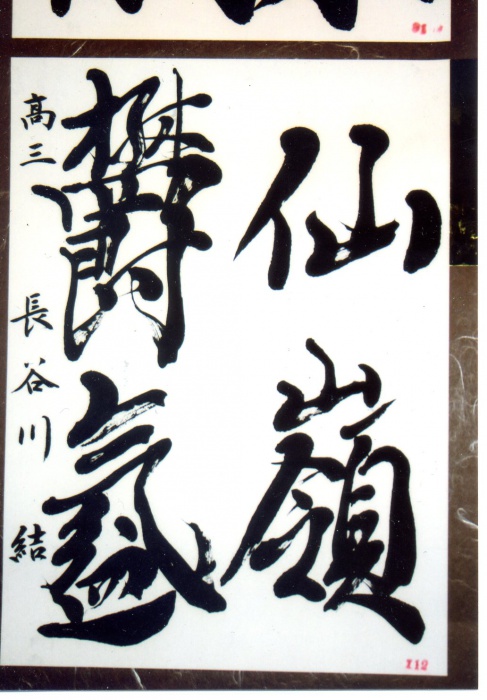 仙嶺
鬱
高三 長谷川 結
112